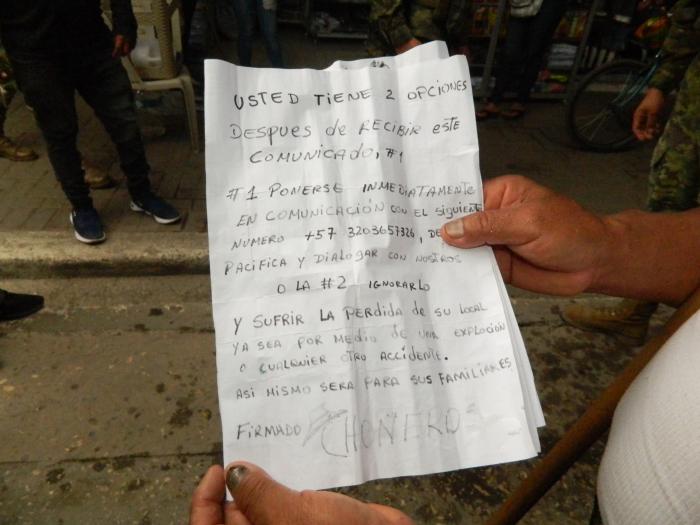 USTED TIENE 2 OPCIONES
DESPUES de RECIBIR este
COMUNICADO, #1
#1 PONERSE INMEDIATAMENTE
EN COMUNICACIÓN CON EL siguiente
NUMERO +57 3203657326,
PACIFICA Y DIALOGAR CON NOSOTROS
O LA #2 IGNORARLO
Y SUFRIR LA PERDIDA DE SU LOCAL
YA SEA POR MEDIO DE UNA EXPLOCIÓN
O CUALQUIER OTRO ACCIDENTE.
ASI MISMO SERA PARA SUS FAMILIARES
FIRMADO CHONERO